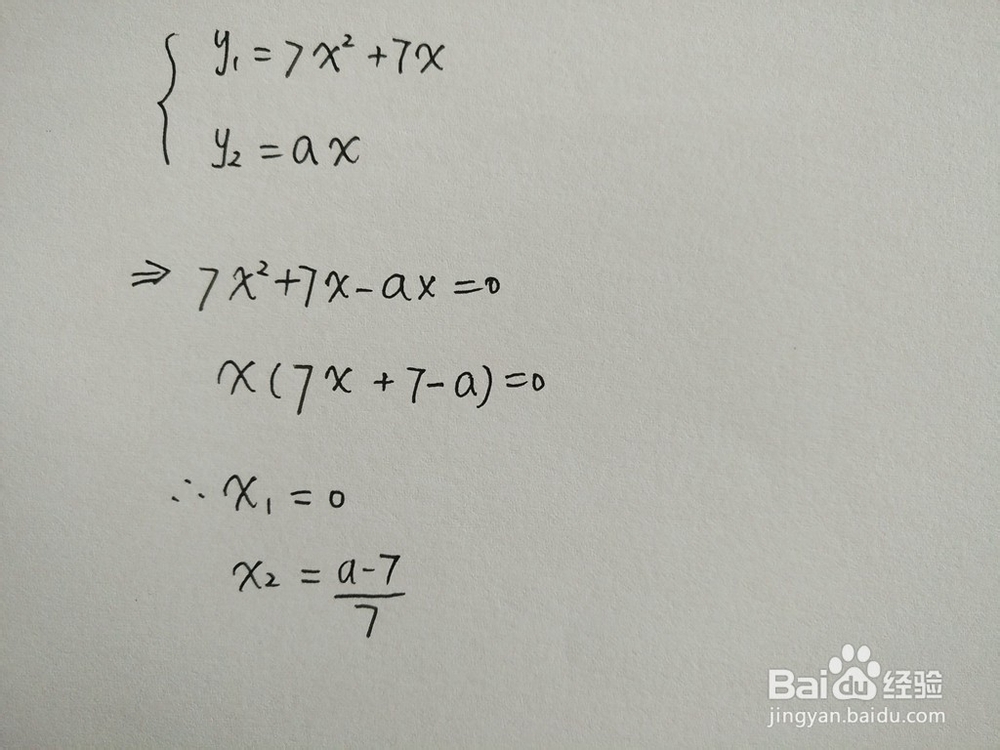 y₁ = 7x² + 7x
y₂ = ax
⇒ 7x² + 7x - ax = 0
x(7x + 7 - a) = 0
∴ x₁ = 0
x₂ = (a-7)/7
Baidu 经验
jingyan.baidu.com